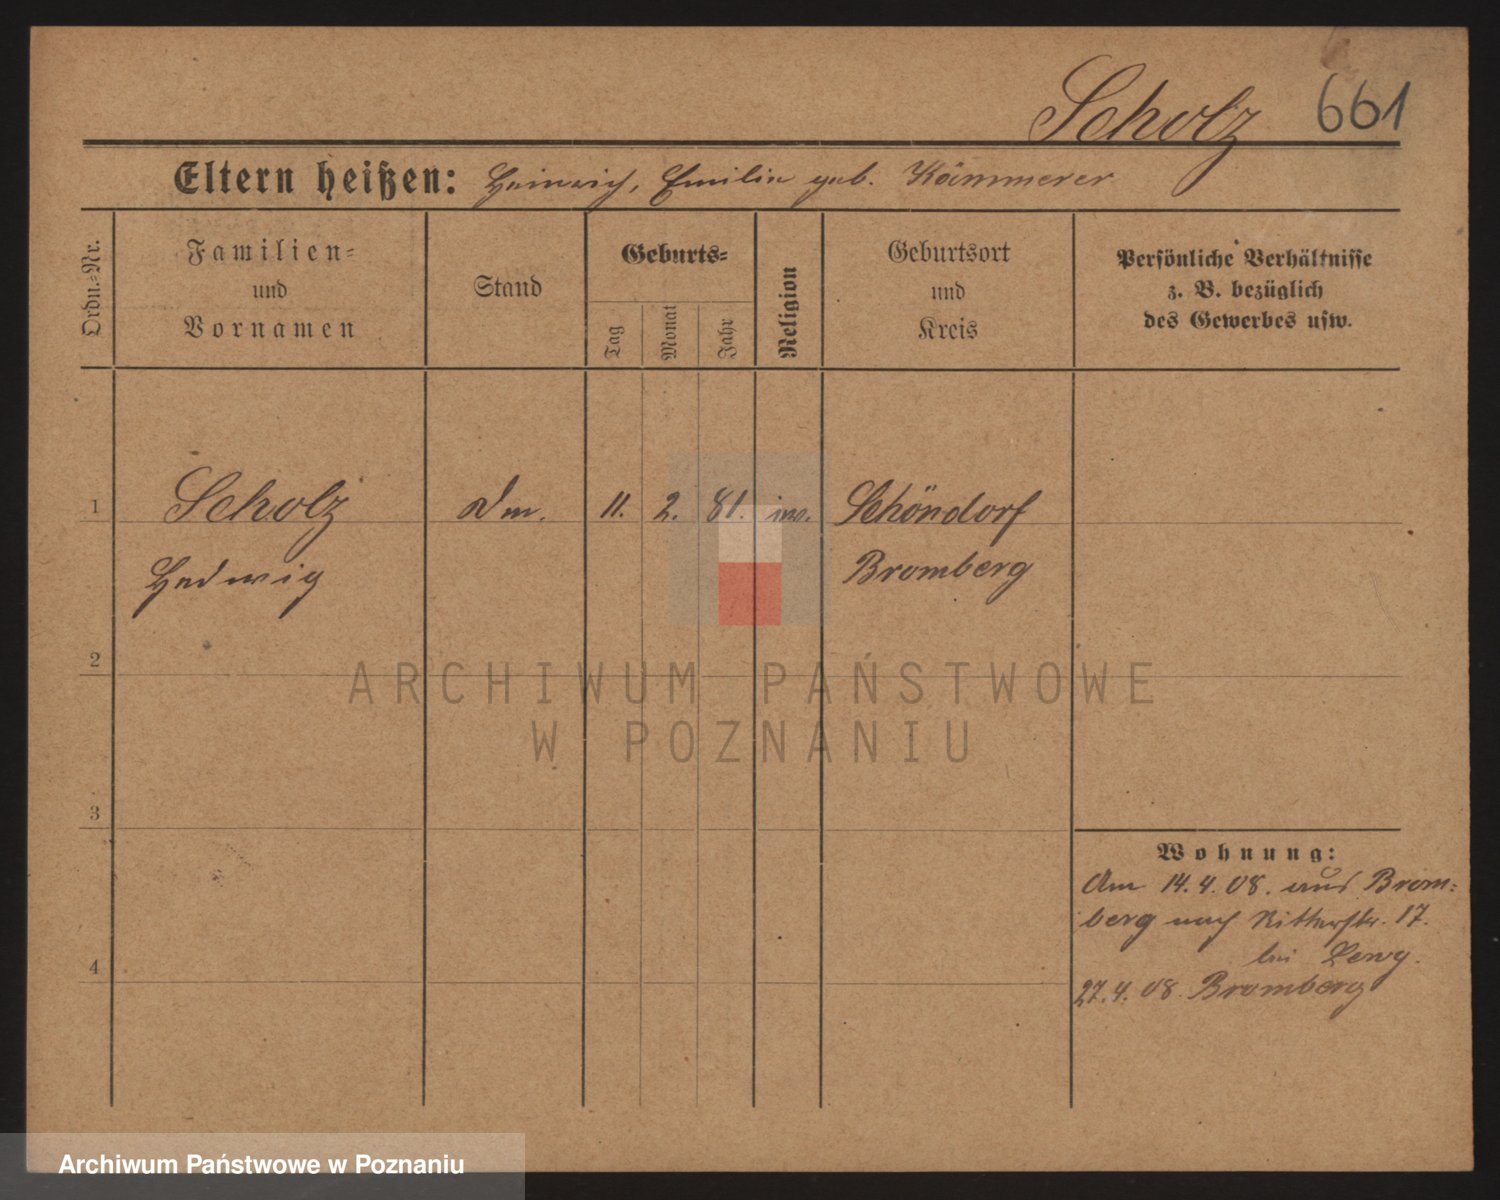 Scholz 661
Eltern heißen: Heinrich, Emilie geb. Kämmerer
Ordn.=Nr.
Familien=
und
Vornamen
Stand
Geburts=
Tag
Monat
Jahr
Religion
Geburtsort
und
Kreis
Persönliche Verhältnisse
z. B. bezüglich
des Gewerbes usw.
1 Scholz 11. 2. 81. Schöndorf
Hedwig Bromberg
2
3
4
Wohnung:
Am 14.4.08. aus Brom=
berg nach Ritterstr. 17.
bei
27.4.08. Bromberg
ARCHIWUM PAŃSTWOWE
W POZNANIU
Archiwum Państwowe w Poznaniu